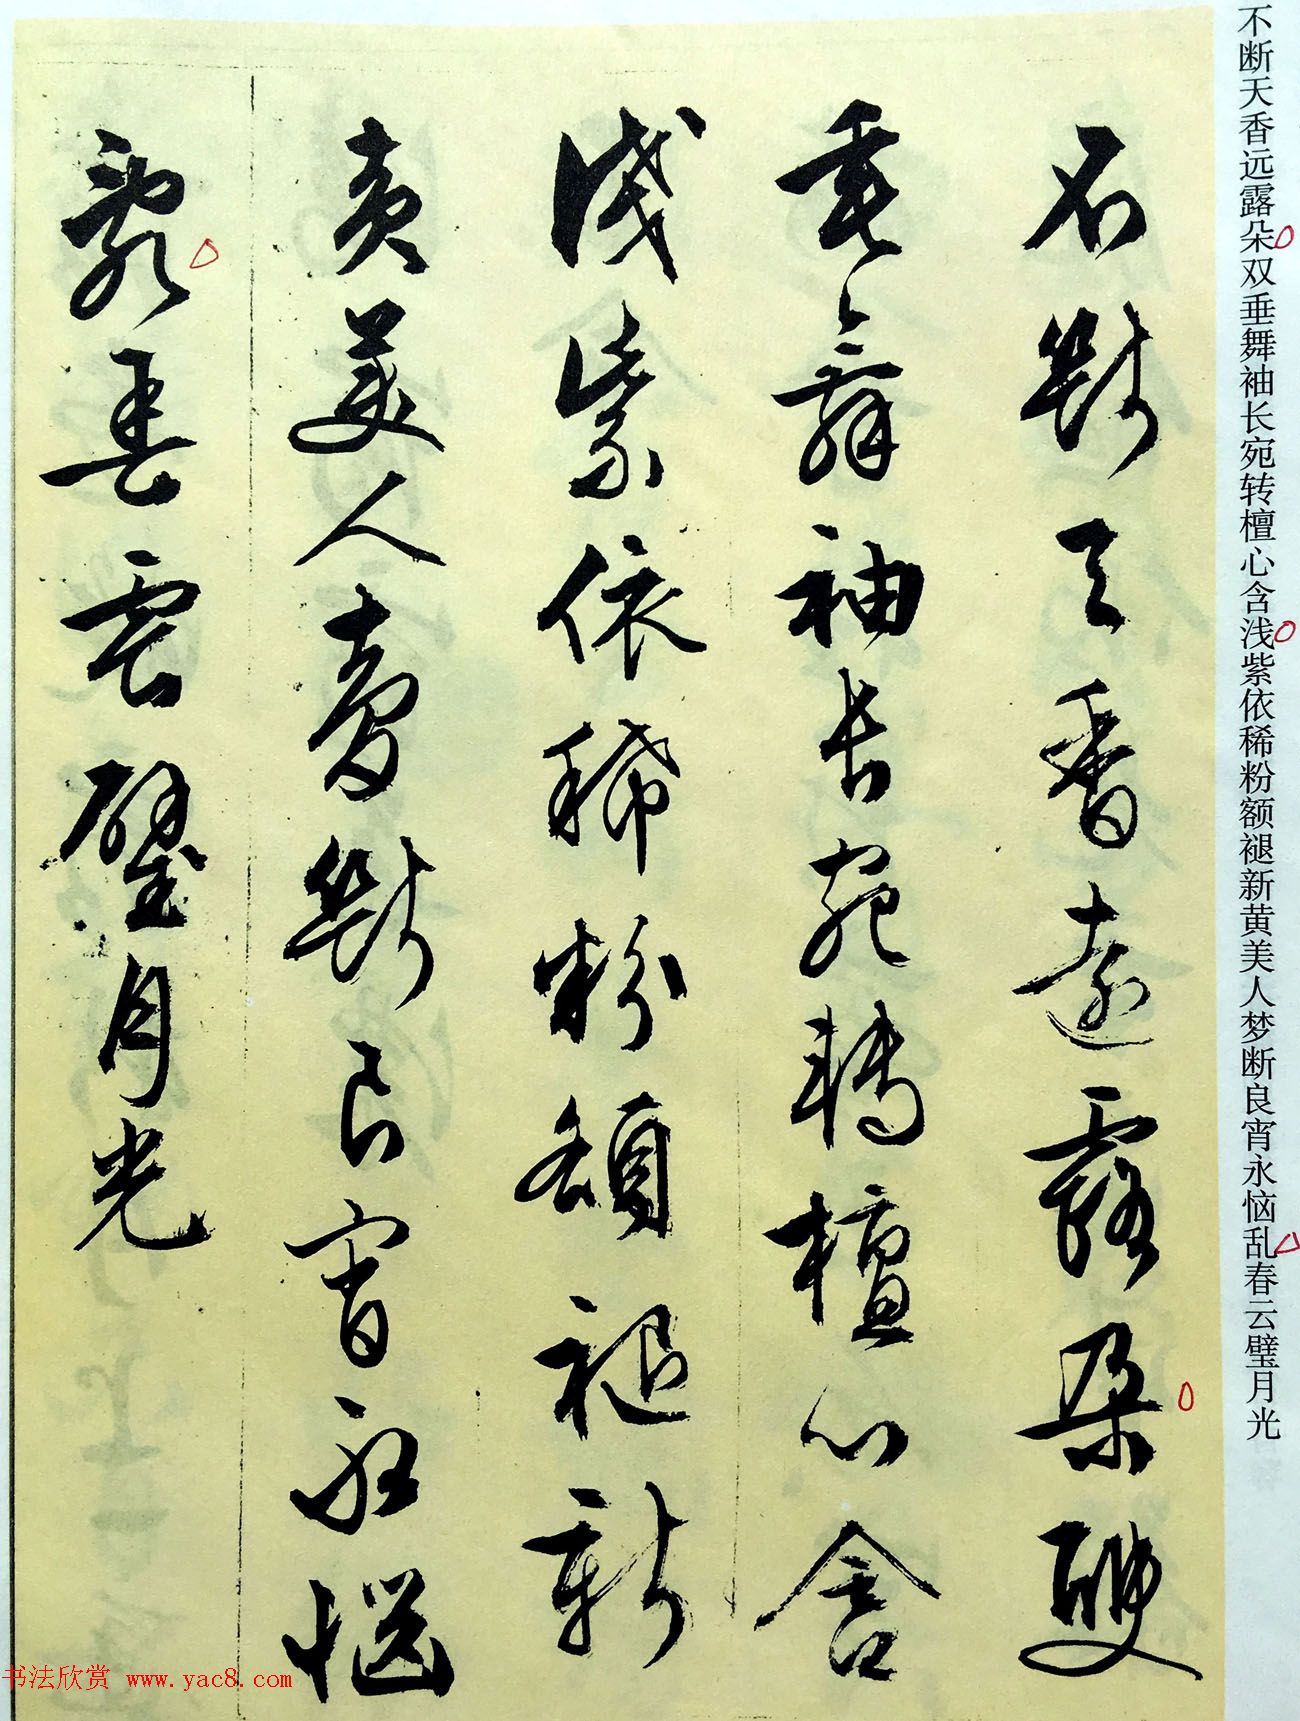 不断天香远露朵双垂舞袖长宛转檀心含浅紫依稀粉额褪新黄美人梦断良宵永恼乱春云璧月光
不斷天香遠露朵雙
垂舞袖長宛轉檀心含
浅紫依稀粉額褪新
黄美人夢斷良宵永惱
亂春雲璧月光
书法欣赏 www.yac8.com